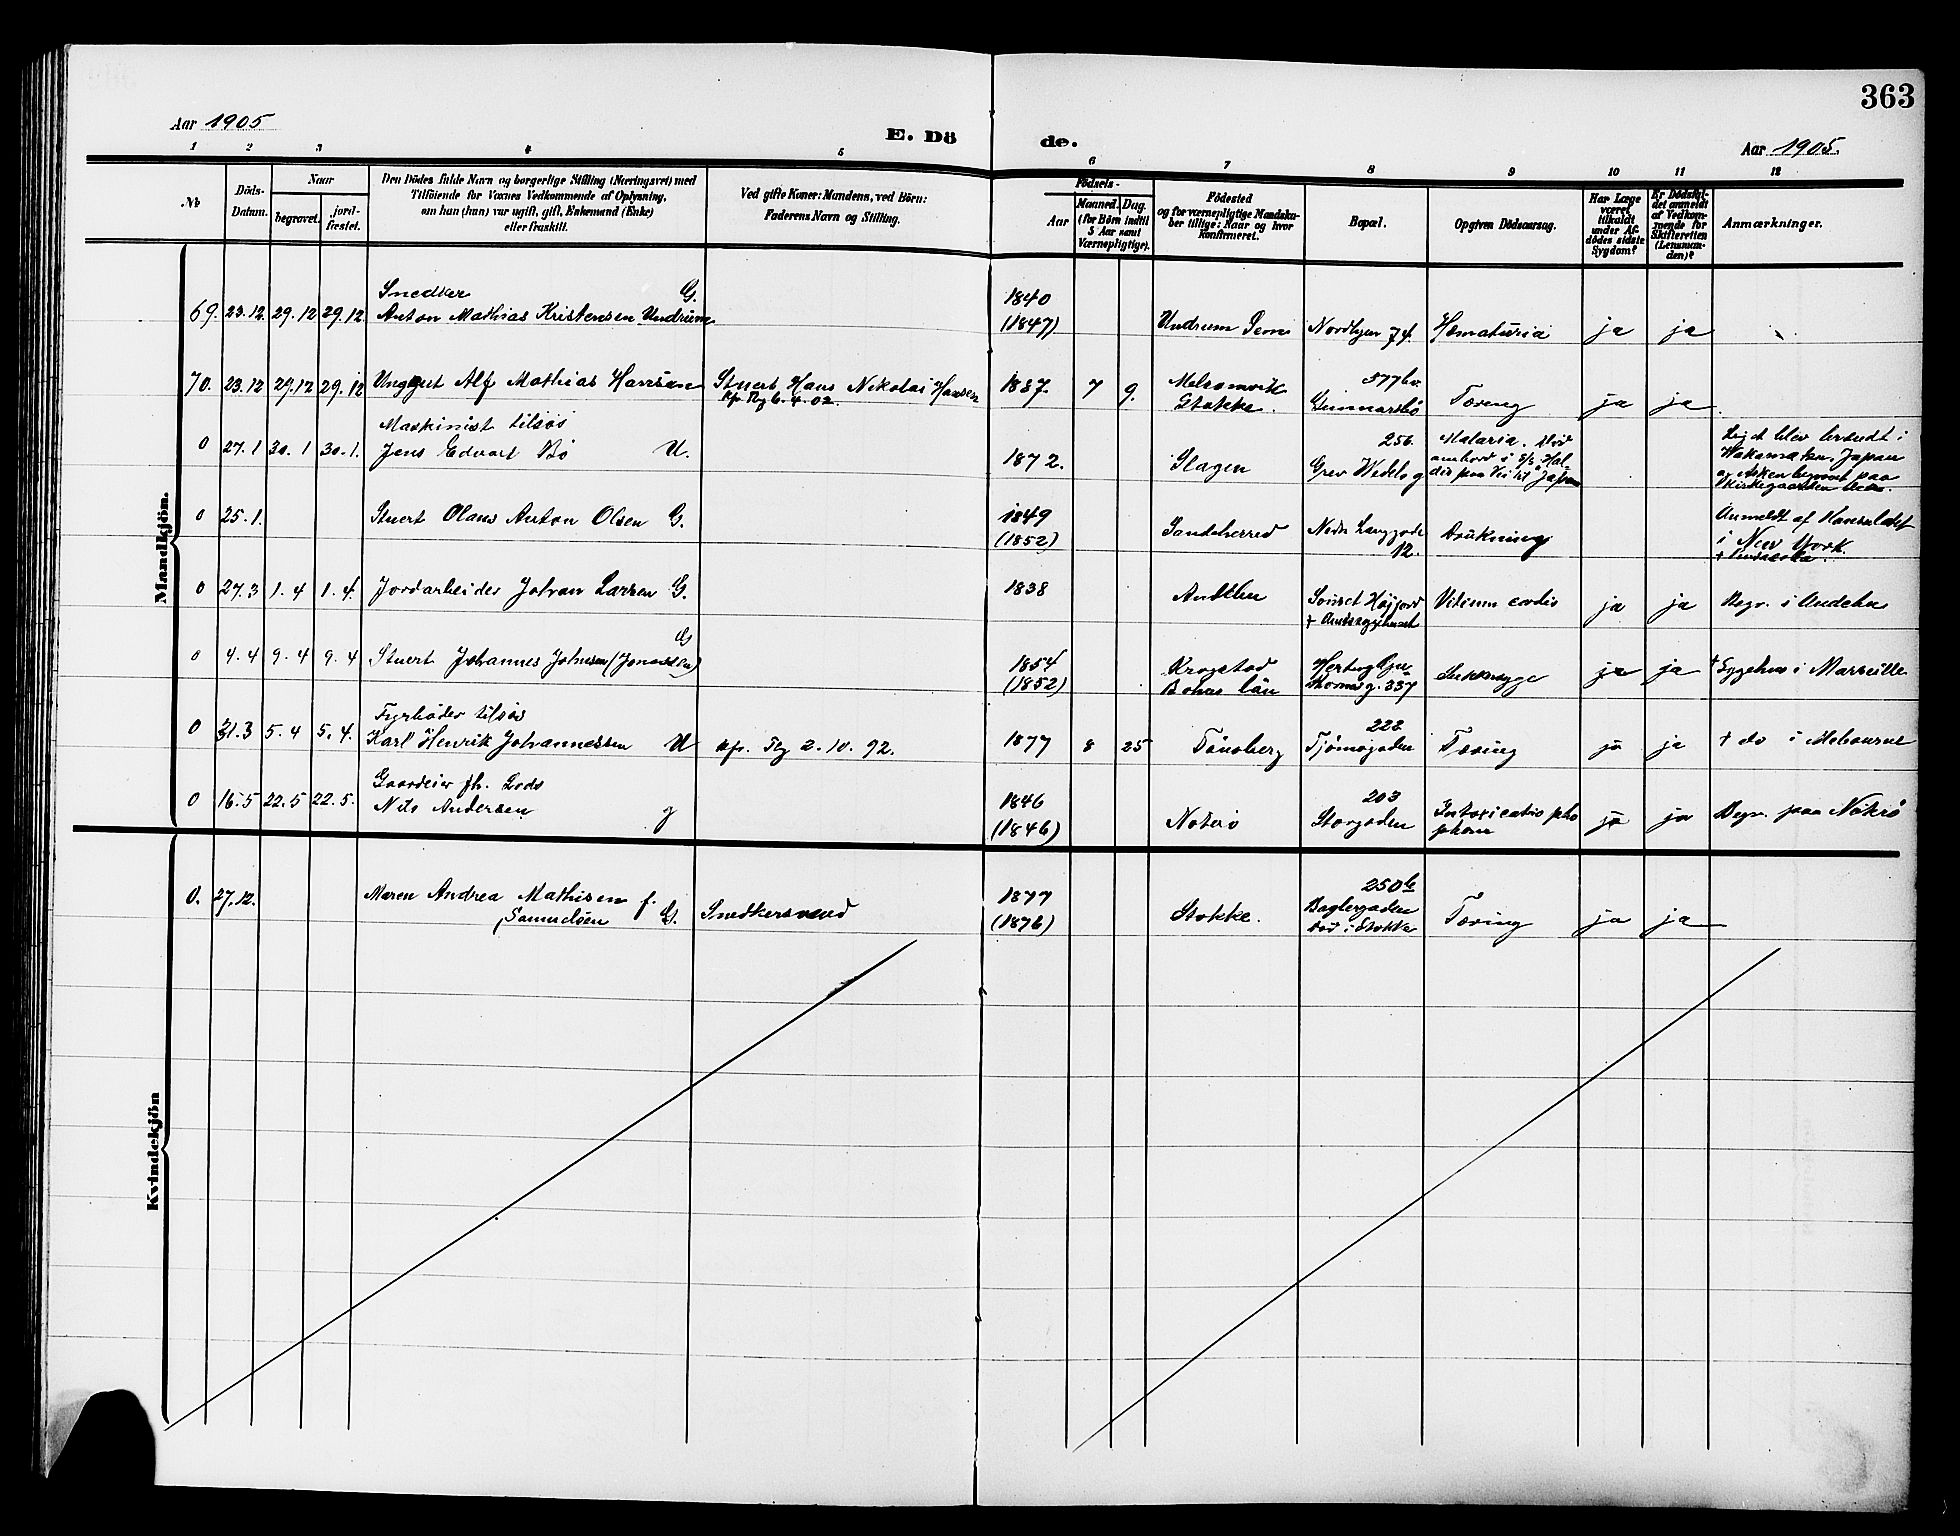 363
Aar 1905
E. Dö
de.
Aar 1905.
1 2 3 4 5 6 7 8 9 10 11 12
No
Döds-
Datum.
Naar
begravet.
jord-
fæstet.
Den Dödes fulde Navn og borgerlige Stilling (Næringsvei) med
Tilföiende for Voxnes Vedkommende af Oplysning,
om han (hun) var ugift, gift, Enkemand (Enke)
eller fraskilt.
Ved gifte Koner: Mandens, ved Börn:
Faderens Navn og Stilling.
Födsels-
Aar
Maaned. Dag.
(for Börn indtil
5 Aar samt
Værnepligtige).
Födested
og for værnepligtige Mandska-
ber tillige: Naar og hvor
konfirmeret.
Bopæl.
Opgiven Dödsaarsag.
Har Læge
været
tilkaldt
under Af-
dödes sidste
Sygdom?
Er Dödsfal-
det anmeldt
af Vedkom-
mende for
Skifteretten
(Lensman-
den)?
Anmærkninger.
Mandkjön.
Snedker G.
69. 23.12. 29.12 29.12 Anton Mathias Kristensen Undrum
1840
(1847) Undrum Sem Nordbyen 74. Hæmaturia ja ja
70. 23.12 29.12 29.12 Unggut Alf Mathias Hansen Stuert Hans Nikolai Hansen
Kfr. Tbg 6.4.02.
1887. 7 9. Melsomvik
Stokke. 577 b.
Gunnarsbö Tæring ja ja
Maskinist tilsøs
0 27.1 30.1 30.1. Jens Edvart Bö U.
1872. Slagen 256.
Grev Wedels g Malaria. död
ombord i S/S Hal-
dis paa Vei til Japan
Liget blev brændt i
Wakamatsu, Japan
og Asken begravet paa
Kirkegaarden der.
0 25.1. Stuert Olaus Anton Olsen G.
1849
(1852) Sandeherred Nedre Langgade
12. Drukning
Anmeldt af Konsulatet
i New York.
0 27.3 1.4 1.4. Jordarbeider Johan Larsen G.
1838 Andebu
+ Amtssygehuset Vitium cordis ja ja Begr. i Andebu
G
0 4.4 9.4 9.4 Stuert Johannes Johnsen (Jonassen)
1854
(1852) Krogstad
Bohus län
g. 337 Sukkersyge ja ja + Sygehus i Marseille
Fyrböder tilsøs
0 31.3 5.4 5.4. Karl Henrik Johannessen U Kfr. Tbg 2.10.92.
1877 8 25 Tönsberg 223
Tjömegaden Tæring ja ja + do i Melbourne
Gaardeier fh. Lods
0 16.5 22.5 22.5. Nils Andersen g
1846
(1846) Noterö 203
Storgaden Intoxicatio pho
phor ja ja Begr. paa Nøtterö
Kvindekjön
0. 27.12. Maren Andrea Mathisen f.
Samuelsen G. Snedkersvend
1877
(1876) Stokke. 250 b
Baglergaden
död i Stokke Tæring ja ja